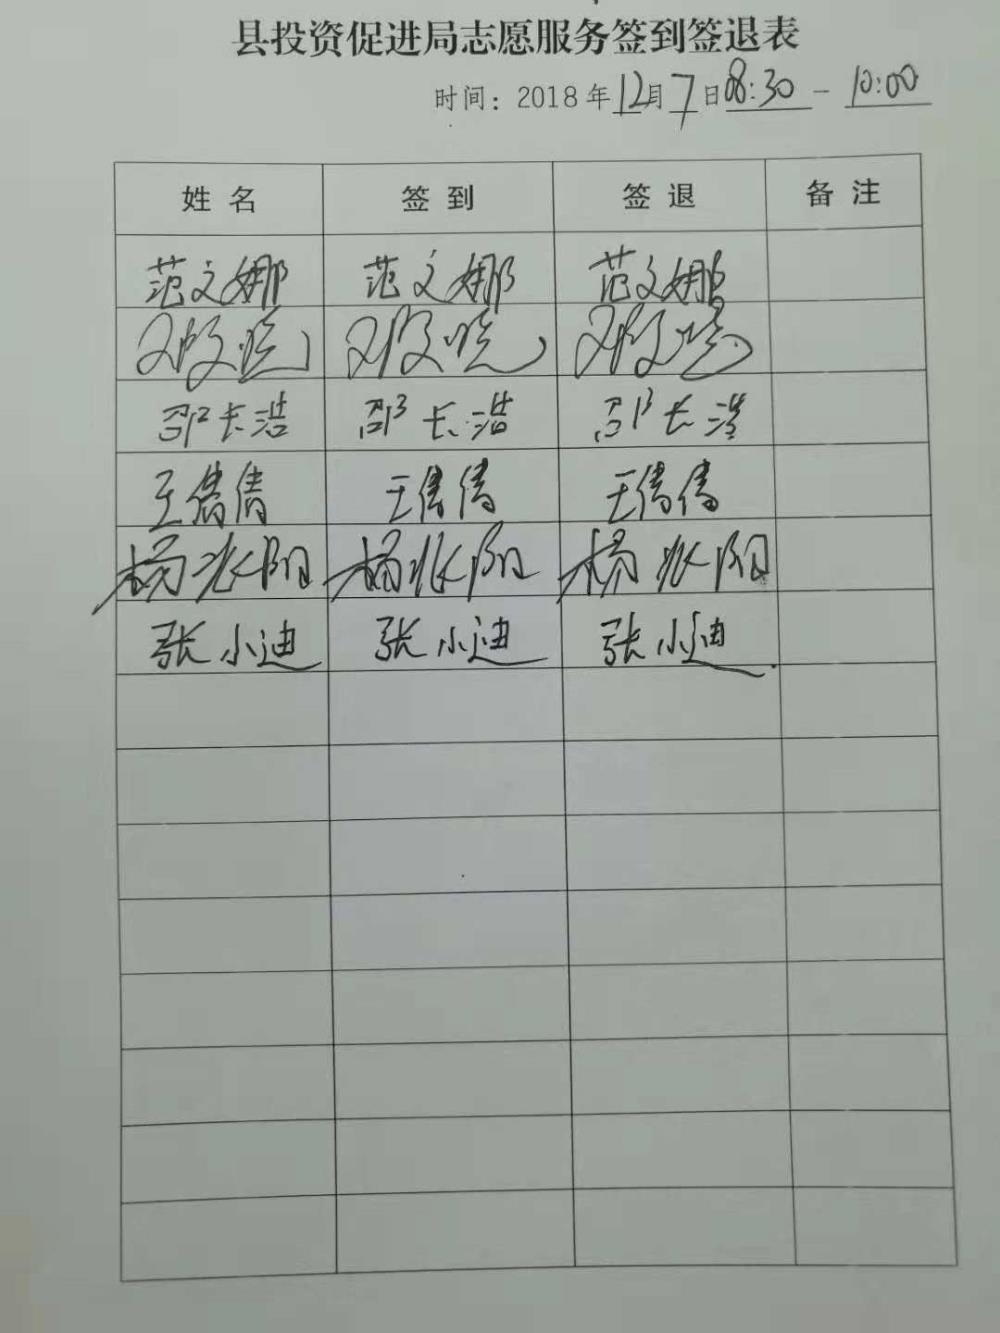 县投资促进局志愿服务签到签退表
时间：2018年12月7日08:30-10:00
姓名 签到 签退 备注
范文娜 范文娜 范文娜
邓 邓 邓
邵长浩 邵长浩 邵长浩
王倩倩 王倩倩 王倩倩
杨兆阳 杨兆阳 杨兆阳
张小迪 张小迪 张小迪